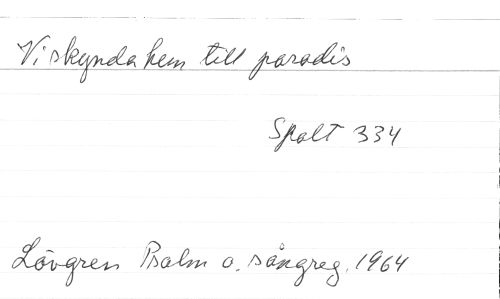 Vi skynda hem till paradis
Spalt 334
Lövgren Psalm o. sångreg. 1964